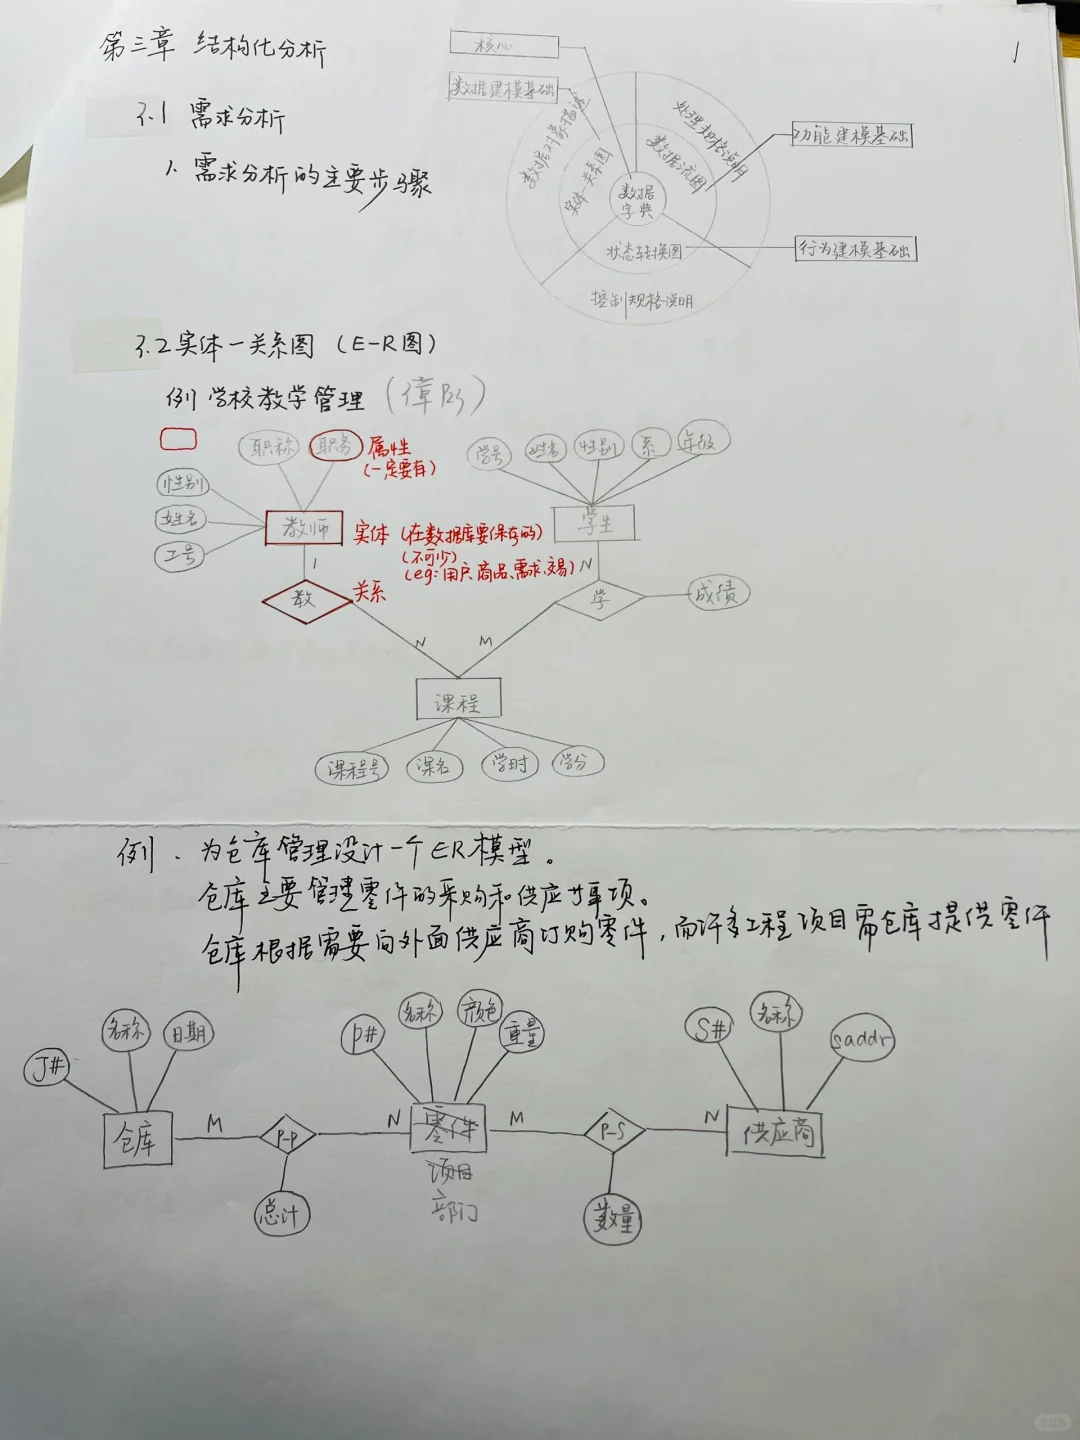 第三章 结构化分析
1
核心
数据建模基础
3.1 需求分析
1. 需求分析的主要步骤
数据对象描述
处理规格说明
实体—关系图
数据流图
数据字典
状态转换图
控制规格说明
功能建模基础
行为建模基础
3.2 实体—关系图 (E-R图)
例 学校教学管理
职称
职务
属性
(一定要有)
性别
姓名
工号
教师
实体 (在数据库要保存的)
(不可少)
(eg: 用户、商品、需求、交易)
学号
姓名
性别
系
年级
学生
1
N
教
关系
学
成绩
N
M
课程
课程号
课名
学时
学分
例. 为仓库管理设计一个ER模型。
仓库主要管理零件的采购和供应等事项。
仓库根据需要向外面供应商订购零件,而许多工程项目需仓库提供零件
J#
名称
日期
P#
名称
颜色
重量
S#
名称
saddr
仓库
M
P-P
N
零件
M
P-S
N
供应商
项目
部门
总计
数量